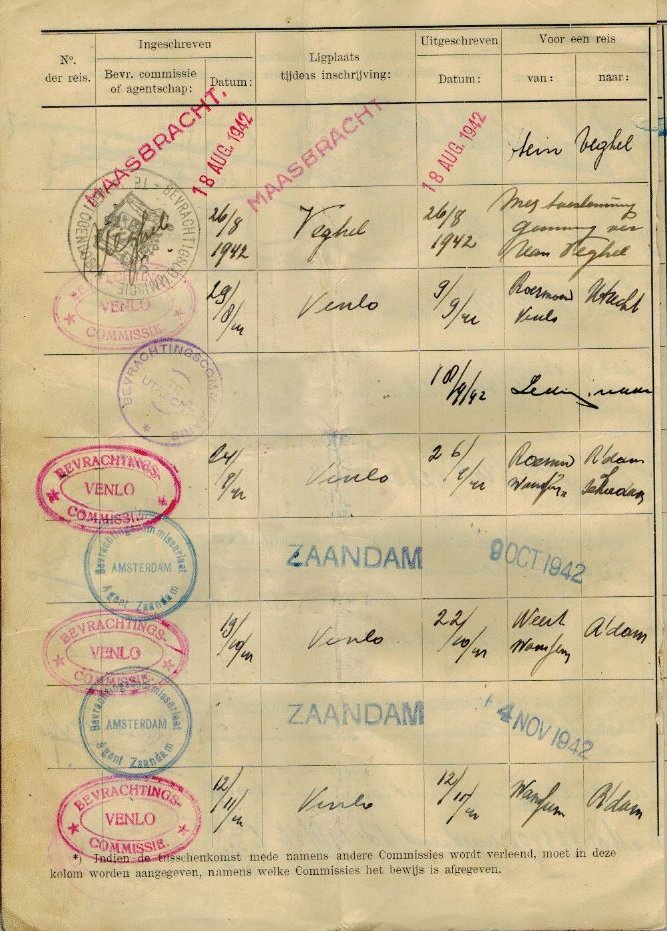 Nº. der reis.
Ingeschreven
Bevr. commissie of agentschap:
Datum:
Ligplaats tijdens inschrijving:
Uitgeschreven
Datum:
Voor een reis
van:
naar:
MAASBRACHT.
18 AUG. 1942
MAASBRACHT
18 AUG. 1942
Veghel
BEVRACHTINGSCOMMISSIE
Veghel
26/8 1942
Veghel
26/8 1942
Veghel
VENLO
COMMISSIE
29/8/42
Venlo
9/9/42
Roermond Venlo
Utrecht
BEVRACHTINGSCOMM
18/9/42
Ledig naar
BEVRACHTINGS-
VENLO
COMMISSIE.
24/
Venlo
26/
A'dam
Schiedam
Bevrachtingscommissariaat
AMSTERDAM
Agent Zaandam
ZAANDAM
9 OCT 1942
BEVRACHTINGS-
VENLO
COMMISSIE.
19/10/42
Venlo
22/10/42
Weert
A'dam
Bevrachtingscommissariaat
AMSTERDAM
Agent Zaandam
ZAANDAM
4 NOV 1942
BEVRACHTINGS-
VENLO
COMMISSIE.
12/11/42
Venlo
12/11/42
Wanssum
*) Indien de tusschenkomst mede namens andere Commissies wordt verleend, moet in deze
kolom worden aangegeven, namens welke Commissies het bewijs is afgegeven.